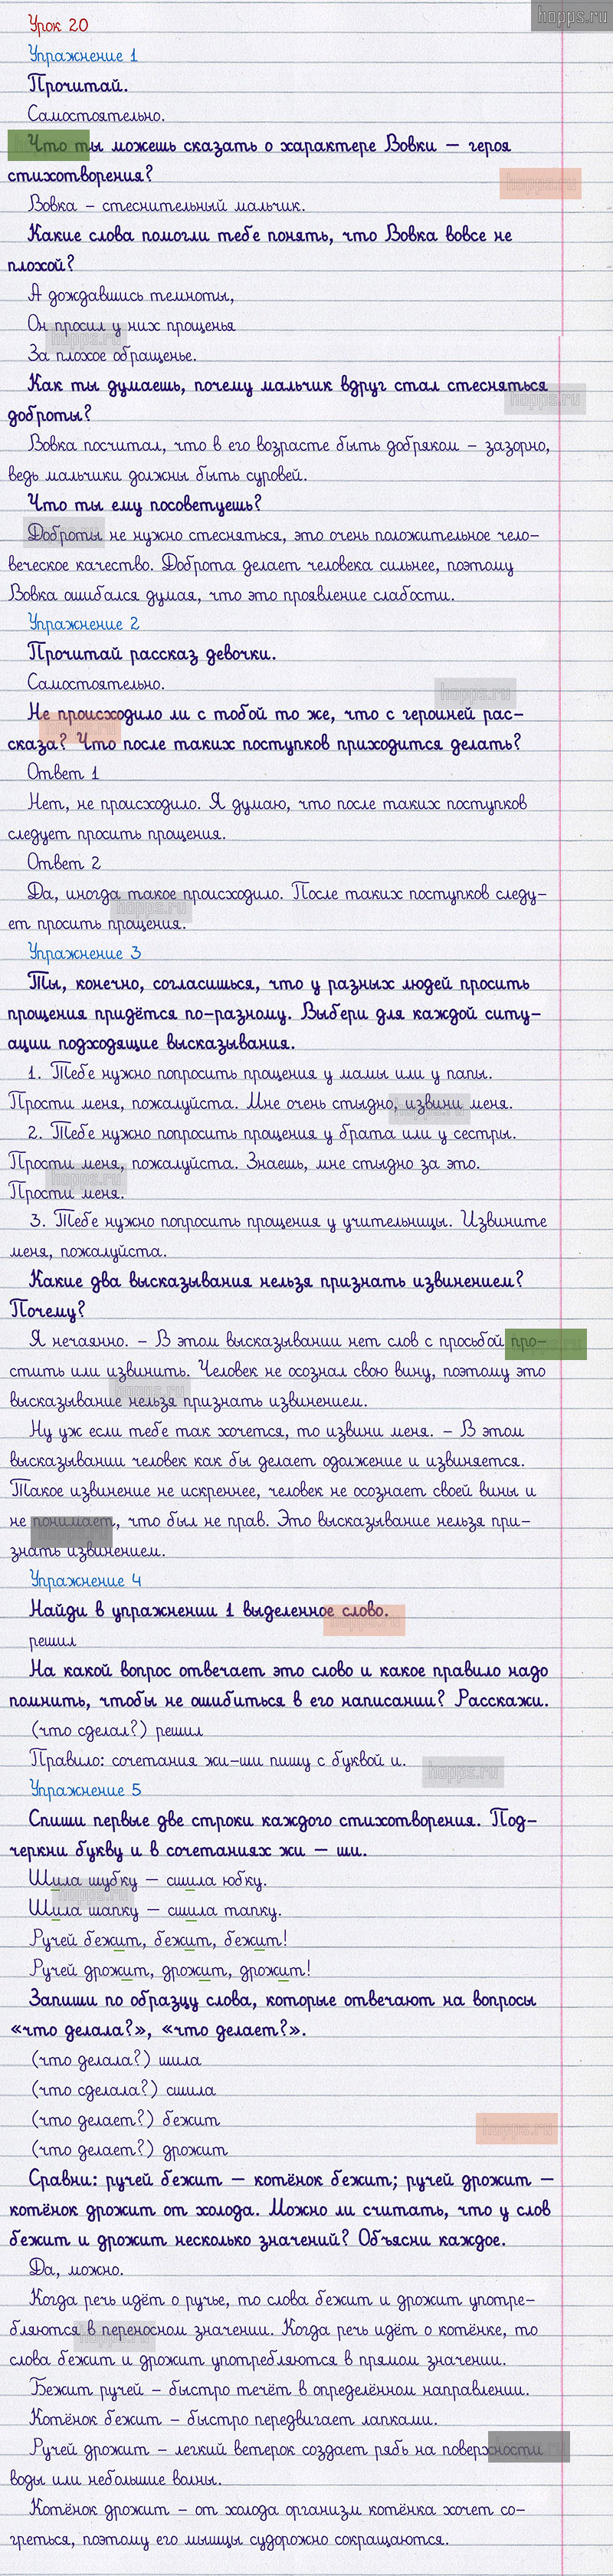 hopps.ru
Урок 20
Упражнение 1
Прочитай.
Самостоятельно.
Что ты можешь сказать о характере Вовки — героя
стихотворения?
hopps.ru
Вовка – стеснительный мальчик.
Какие слова помогли тебе понять, что Вовка вовсе не
плохой?
А дождавшись темноты,
Он просил у них прощенья
hopps.ru
За плохое обращенье.
Как ты думаешь, почему мальчик вдруг стал стесняться
hopps.ru
доброты?
Вовка посчитал, что в его возрасте быть добряком – зазорно,
ведь мальчики должны быть суровей.
Что ты ему посоветуешь?
Доброты не нужно стесняться, это очень положительное чело-
веческое качество. Доброта делает человека сильнее, поэтому
Вовка ошибался думая, что это проявление слабости.
Упражнение 2
Прочитай рассказ девочки.
Самостоятельно.
hopps.ru
Не происходило ли с тобой то же, что с героиней рас-
сказа? Что после таких поступков приходится делать?
Ответ 1
Нет, не происходило. Я думаю, что после таких поступков
следует просить прощения.
Ответ 2
Да, иногда такое происходило. После таких поступков следу-
hopps.ru
ет просить прощения.
Упражнение 3
Ты, конечно, согласишься, что у разных людей просить
прощения придётся по-разному. Выбери для каждой ситу-
ации подходящие высказывания.
1. Тебе нужно попросить прощения у мамы или у папы.
Прости меня, пожалуйста. Мне очень стыдно, извини меня.
hopps.ru
2. Тебе нужно попросить прощения у брата или у сестры.
Прости меня, пожалуйста. Знаешь, мне стыдно за это.
hopps.ru
Прости меня.
3. Тебе нужно попросить прощения у учительницы. Извините
меня, пожалуйста.
Какие два высказывания нельзя признать извинением?
Почему?
Я нечаянно. – В этом высказывании нет слов с просьбой про-
стить или извинить. Человек не осознал свою вину, поэтому это
hopps.ru
высказывание нельзя признать извинением.
Ну уж если тебе так хочется, то извини меня. – В этом
высказывании человек как бы делает одолжение и извиняется.
Такое извинение не искреннее, человек не осознает своей вины и
не понимает, что был не прав. Это высказывание нельзя при-
знать извинением.
Упражнение 4
Найди в упражнении 1 выделенное слово.
hopps.ru
решил
На какой вопрос отвечает это слово и какое правило надо
помнить, чтобы не ошибиться в его написании? Расскажи.
(что сделал?) решил
Правило: сочетания жи-ши пишу с буквой и.
hopps.ru
Упражнение 5
Спиши первые две строки каждого стихотворения. Под-
черкни букву и в сочетаниях жи — ши.
Шила шубку — сшила юбку.
hopps.ru
Шила шапку — сшила тапку.
Ручей бежит, бежит, бежит!
Ручей дрожит, дрожит, дрожит!
Запиши по образцу слова, которые отвечают на вопросы
«что делала?», «что делает?».
(что делала?) шила
(что сделала?) сшила
(что делает?) бежит
hopps.ru
(что делает?) дрожит
Сравни: ручей бежит — котёнок бежит; ручей дрожит —
котёнок дрожит от холода. Можно ли считать, что у слов
бежит и дрожит несколько значений? Объясни каждое.
Да, можно.
Когда речь идёт о ручье, то слова бежит и дрожит употре-
бляются в переносном значении. Когда речь идёт о котёнке, то
hopps.ru
слова бежит и дрожит употребляются в прямом значении.
Бежит ручей – быстро течёт в определённом направлении.
Котёнок бежит – быстро передвигает лапками.
Ручей дрожит – легкий ветерок создает рябь на поверхности
воды или небольшие волны.
Котёнок дрожит – от холода организм котёнка хочет со-
греться, поэтому его мышцы судорожно сокращаются.